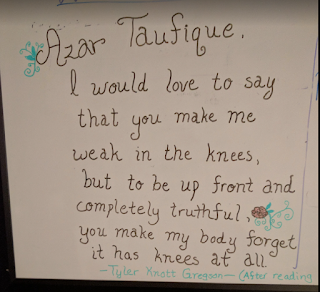 Azar Taufique.
I would love to say
that you make me
weak in the knees,
but to be up front and
completely truthful,
you make my body forget
it has knees at all.
—Tyler Knott Gregson— (After reading